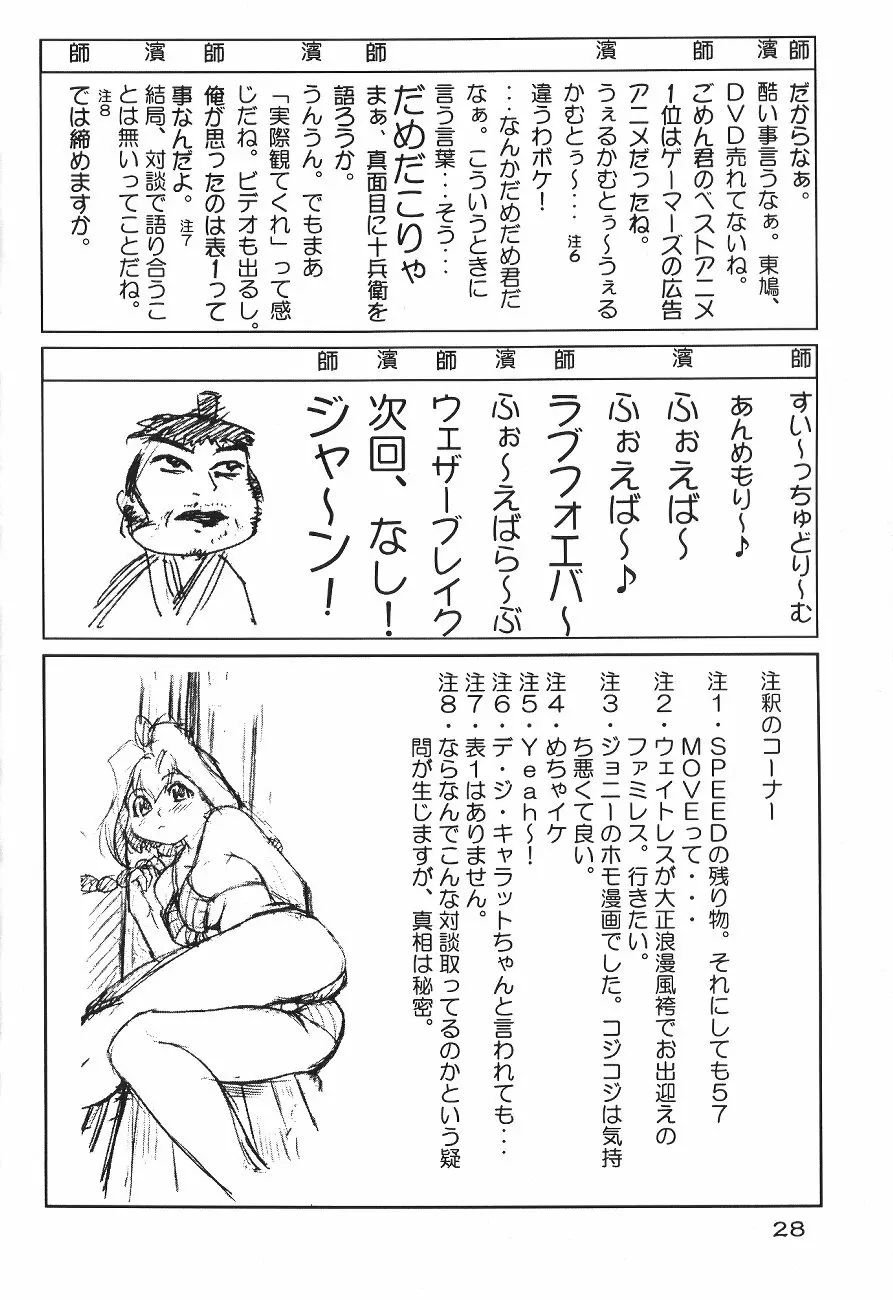 師
濱
師
濱
師
濱
師
濱
師
だからなぁ。
酷い事言うなぁ。東鳩、
DVD売れてないね。
ごめん君のベストアニメ
1位はゲーマーズの広告
アニメだったね。
うぇるかむとぅ〜うぇる
かむとぅ〜・・・ 注6
違うわボケ!
・・・なんかだめだめ君だ
なぁ。こういうときに
言う言葉・・・そう・・・
だめだこりゃ
まぁ、真面目に十兵衛を
語ろうか。
うんうん。でもまあ
「実際観てくれ」って感
じだね。ビデオも出るし。
俺が思ったのは表1って
事なんだよ。 注7
結局、対談で語り合うこ
とは無いってことだね。
注8
では締めますか。
師
濱
師
濱
師
濱
師
すい〜っちゅどり〜む
あんめもり〜♪
ふぉえば〜
ふぉえば〜♪
ラブフォエバ〜
ふぉ〜えばら〜ぶ
ウェザーブレイク
次回、なし!
ジャ〜ン!
注釈のコーナー
注1・SPEEDの残り物。それにしても57
MOVEって・・・
注2・ウェイトレスが大正浪漫風袴でお出迎えの
ファミレス。行きたい。
注3・ジョニーのホモ漫画でした。コジコジは気持
ち悪くて良い。
注4・めちゃイケ
注5・Yeah〜!
注6・デ・ジ・キャラットちゃんと言われても・・・
注7・表1はありません。
注8・ならなんでこんな対談取ってるのかという疑
問が生じますが、真相は秘密。
28